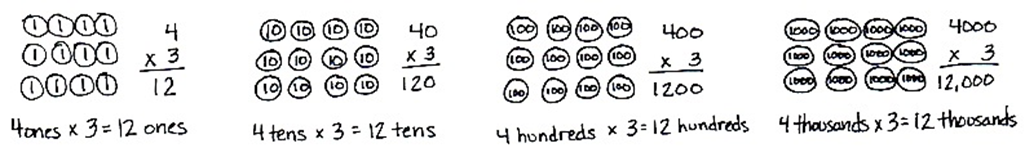 1 1 1 1
1 1 1 1
1 1 1 1
4
x 3
12
4 ones x 3 = 12 ones
10 10 10 10
10 10 10 10
10 10 10 10
40
x 3
120
4 tens x 3 = 12 tens
100 100 100 100
100 100 100 100
100 100 100 100
400
x 3
1200
4 hundreds x 3 = 12 hundreds
1000 1000 1000 1000
1000 1000 1000 1000
1000 1000 1000 1000
4000
x 3
12,000
4 thousands x 3 = 12 thousands